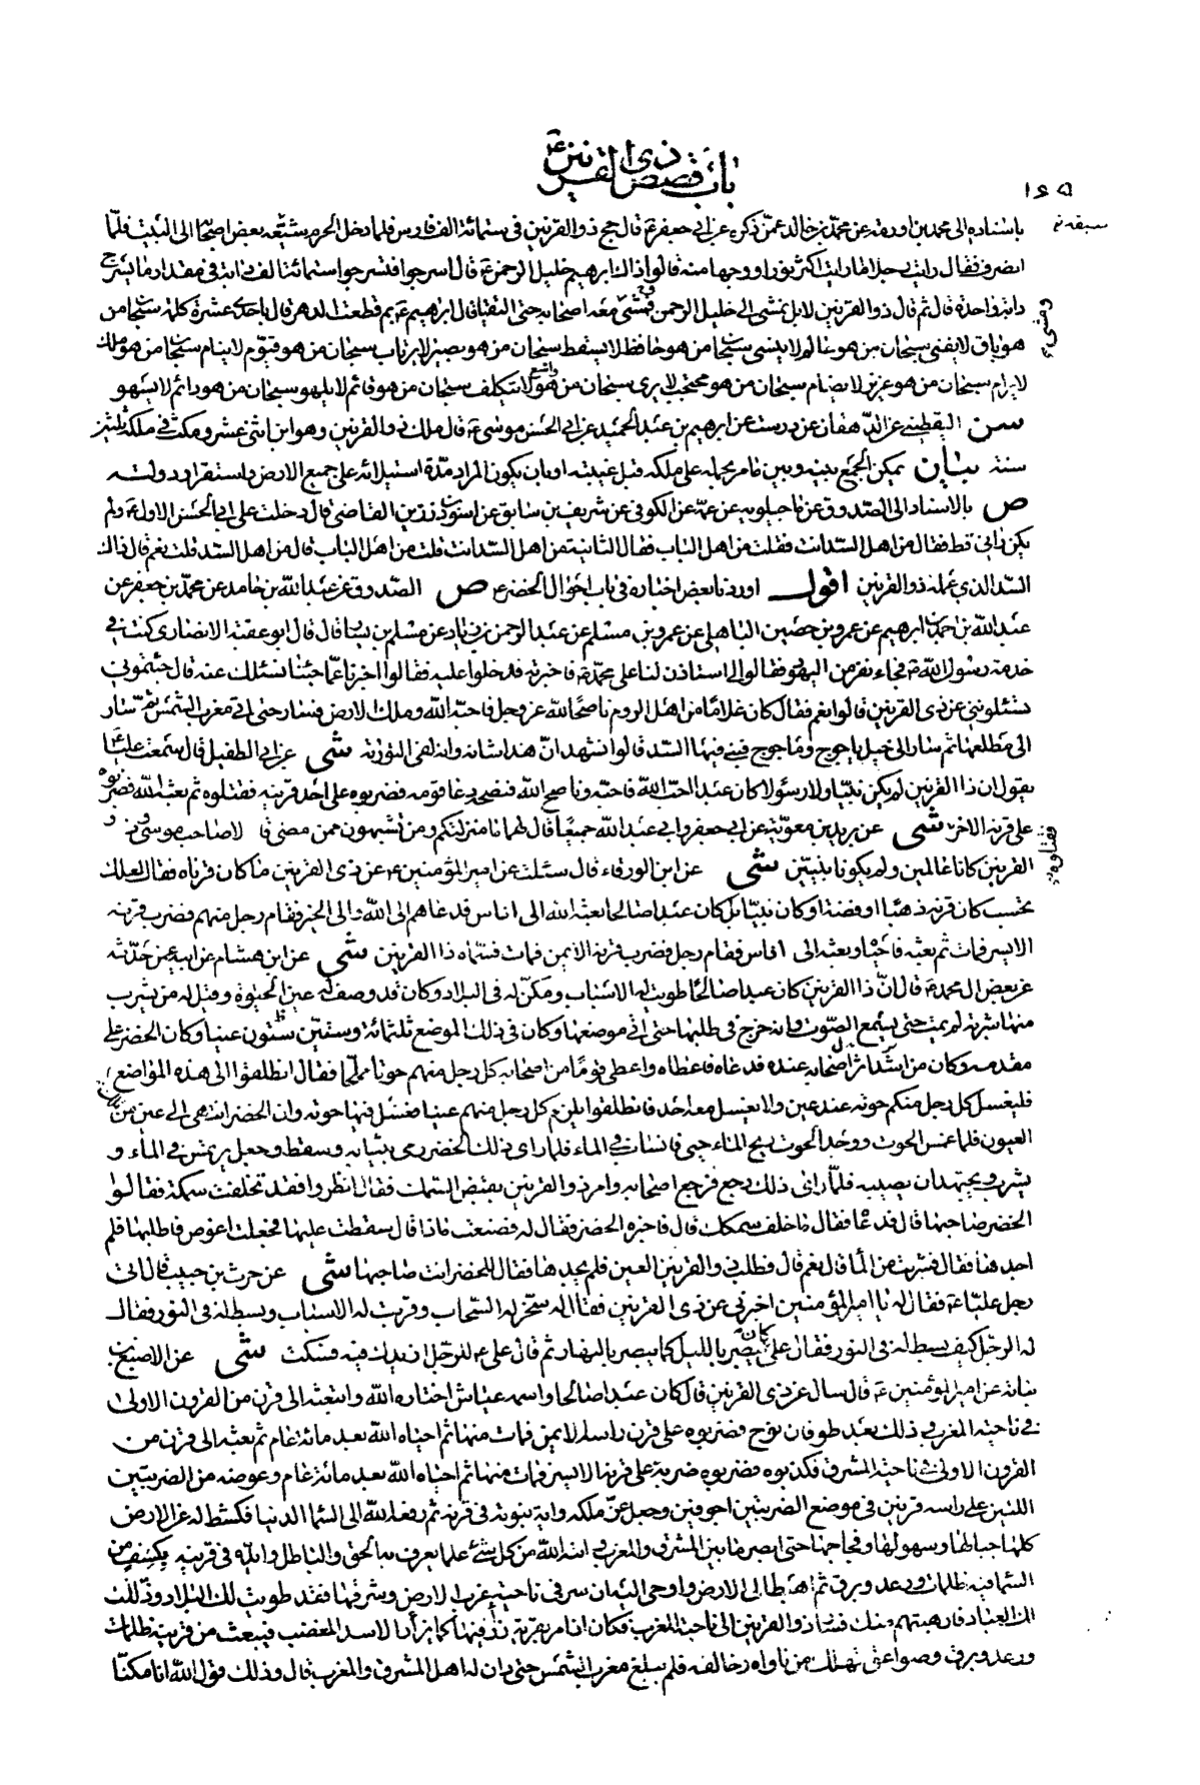 باب قصص ذي القرنين ع
١٦٥
باسناده الى محمد بن اورمه عن محمد بن خالد عمن ذكره عن ابي جعفر ع قال حج ذو القرنين في ستمائة الف فارس فلما دخل الحرم شيعه بعض اصحابه الى البيت فلما
انصرف فقال رايت رجلا ما رايت اكثر نورا ووجها منه قالوا ذاك ابرهيم خليل الرحمن ع قال اسرجوا فتسرجوا ستمائة الف دابة في مقدار ما يسرج
دابة واحدة قال ثم قال ذو القرنين لا بل نمشي الى خليل الرحمن فمشى معه اصحابه حتى التقيا قال ابرهيم ع بم قطعت الدهر قال باحدى عشرة كلمة سبحان من
هو باق لا يفنى سبحان من هو عالم لا ينسى سبحان من هو حافظ لا يسقط سبحان من هو بصير لا يرتاب سبحان من هو قيوم لا ينام سبحان من هو ملك
لا يرام سبحان من هو عزيز لا يضام سبحان من هو محتجب لا يرى سبحان من هو واسع لا يتكلف سبحان من هو قائم لا يلهو سبحان من هو دائم لا يسهو
سن اليقطيني عن الدهقان عن درست عن ابرهيم بن عبد الحميد عن ابي الحسن موسى ع قال ملك ذو القرنين وهو ابن اثنى عشر ومكث في ملكه ثلثين
سنة بيان يمكن الجمع بينه وبين ما مر بحمله على ملكه قبل غيبته او بان يكون المراد مدة استيلائه على جميع الارض واستقرار دولته
ص بالاسناد الى الصدوق عن ماجيلويه عن عمه عن الكوفي عن شريف بن سابق عن اسود بن رزين القاضي قال دخلت على ابي الحسن الاول ع ولم
يكن راني قط فقال من اهل السد انت فقلت من اهل الباب فقال الثانية من اهل السد انت قلت من اهل الباب قال من اهل السد قلت نعم قال ذاك
السد الذي عمله ذو القرنين اقول اوردنا بعض اخباره في باب احوال الخضر ع ص الصدوق عن عبد الله بن حامد عن محمد بن جعفر عن
عبد الله بن احمد بن ابرهيم عن عمرو بن حصين الباهلي عن عمرو بن مسلم عن عبد الرحمن بن زياد عن مسلم بن يسار قال قال ابو عقبة الانصاري كنت في
خدمة رسول الله ص فجاء نفر من اليهود فقالوا لي استاذن لنا على محمد ص فاخبرته فدخلوا عليه فقالوا اخبرنا عما جئنا نسئلك عنه قال جئتموني
تسئلونني عن ذي القرنين قالوا نعم فقال كان غلاما من اهل الروم ناصحا لله عز وجل فاحبه الله وملك الارض فسار حتى اتى مغرب الشمس ثم سار
الى مطلعها ثم سار الى خيل ياجوج وماجوج فبنى فيها السد قالوا نشهد ان هذا شانه وانه لفي التورية شى عن ابي الطفيل قال سمعت عليا ع
يقول ان ذا القرنين لم يكن نبيا ولا رسولا كان عبدا احب الله فاحبه وناصح الله فنصحه دعا قومه فضربوه على احد قرنيه فقتلوه ثم بعثه الله فضربوه
على قرنه الاخر شى عن بريد بن معوية عن ابي جعفر وابي عبد الله جميعا قال لهما ما منزلتكم ومن تشبهون ممن مضى قالا صاحب موسى وذو
القرنين كانا عالمين ولم يكونا نبيين شى عن ابن الورقاء قال سئلت عن امير المؤمنين ع عن ذي القرنين ما كان قرناه فقال لعلك
تحسب كان قرنه ذهبا او فضة او كان نبيا بل كان عبدا صالحا بعثه الله الى اناس فدعاهم الى الله والى الخير فقام رجل منهم فضرب قرنه
الايسر فمات ثم بعثه فاحياه وبعثه الى اناس فقام رجل فضرب قرنه الايمن فمات فسماه ذا القرنين شى عن ابن هشام عن ابيه عمن حدثه
عن بعض ال محمد ع قال ان ذا القرنين كان عبدا صالحا طويت له الاسباب ومكن له في البلاد وكان قد وصف له عين الحيوة وقيل له من يشرب
منها شربة لم يمت حتى يسمع الصوت وانه خرج في طلبها حتى اتى موضعها وكان في ذلك الموضع ثلثمائة وستين عينا وكان الخضر على
مقدمته وكان من اشد اصحابه عنده فدعاه فاعطاه واعطى قوما من اصحابه كل رجل منهم حوتا مملحا فقال انطلقوا الى هذه المواضع
فليغسل كل رجل منكم حوته عند عين ولا يغسل معه احد فانطلقوا يلزم كل رجل منهم عينا فغسل فيها حوته وان الخضر انتهى الى عين من تلك
العيون فلما غمس الحوت ووجد الحوت ريح الماء حيي فانساب في الماء فلما راى ذلك الخضر رمى بثيابه وسقط وجعل يرتمس في الماء و
يشرب ويجتهد ان يصيبه فلما راى ذلك رجع فرجع اصحابه وامر ذو القرنين بقبض السمك فقال انظروا فقد تخلفت سمكة فقالوا
الخضر صاحبها قال فدعاه فقال ما خلف سمكتك قال فاخبره الخبر فقال له فصنعت ماذا قال سقطت عليها فجعلت اغوص فاطلبها فلم
اجدها فقال فشربت من الماء قال نعم قال فطلب ذو القرنين العين فلم يجدها فقال للخضر انت صاحبها شى عن حرث بن حبيب قال اتى
رجل عليا ع فقال له يا امير المؤمنين اخبرني عن ذي القرنين فقال له سخر له السحاب وقربت له الاسباب وبسط له في النور فقال
له الرجل كيف بسط له في النور فقال علي ع كان يبصر بالليل كما يبصر بالنهار ثم قال علي ع للرجل ازيدك فيه فسكت شى عن الاصبغ بن
نباتة عن امير المؤمنين ع قال سال عن ذي القرنين قال كان عبدا صالحا واسمه عياش اختاره الله وابتعثه الى قرن من القرون الاولى
في ناحية المغرب وذلك بعد طوفان نوح فضربوه على قرن راسه الايمن فمات منها ثم احياه الله بعد مائة عام ثم بعثه الى قرن من
القرون الاولى في ناحية المشرق فكذبوه فضربوه ضربة على قرنه الايسر فمات منها ثم احياه الله بعد مائة عام وعوضه من الضربتين
اللتين على راسه قرنين في موضع الضربتين اجوفين وجعل عز ملكه واية نبوته في قرنه ثم رفعه الله الى السماء الدنيا فكشط له عن الارض
كلها جبالها وسهولها وفجاجها حتى ابصر ما بين المشرق والمغرب واتاه الله من كل شئ علما يعرف به الحق والباطل وايده في قرنيه بكسف من
السماء فيه ظلمات ورعد وبرق ثم اهبط الى الارض واوحى اليه ان سر في ناحية غرب الارض وشرقها فقد طويت لك البلاد وذللت
لك العباد فارهبتهم منك فسار ذو القرنين الى ناحية المغرب فكان اذا مر بقرية زأر فيها كما يزأر الاسد المغضب فينبعث من قرنيه ظلمات
ورعد وبرق وصواعق تهلك من ناواه وخالفه فلم يبلغ مغرب الشمس حتى دان له اهل المشرق والمغرب قال وذلك قول الله انا مكنا